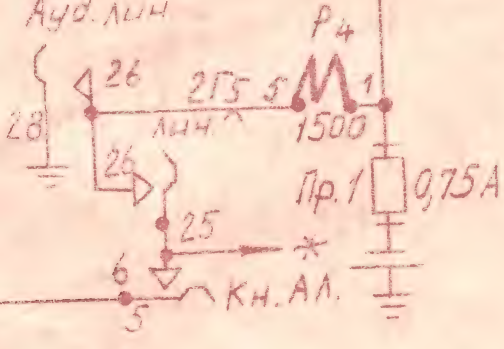 Ауд. лин
Р4
26
2Г5
5
1
28
Лин
1500
26
Пр. 1
0,75А
25
6
5
Кн. Ал.